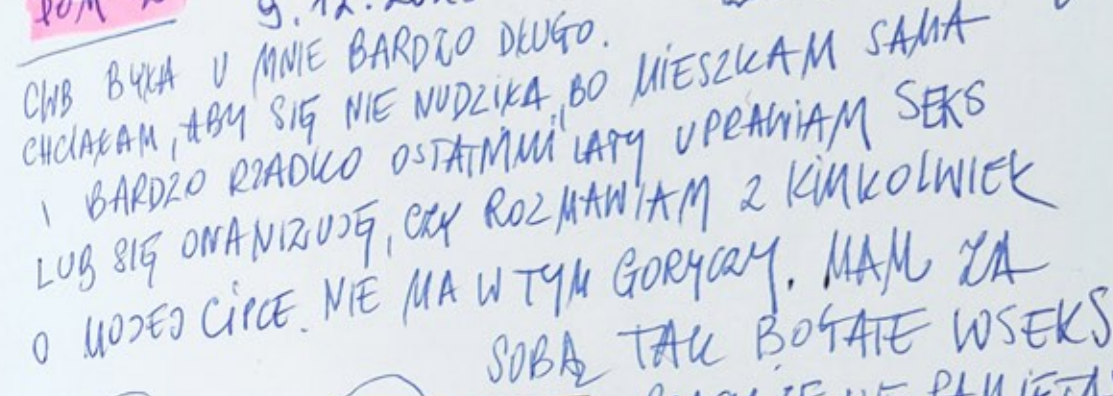 9.12.20
CWB BYŁA U MNIE BARDZO DŁUGO.
CHCIAŁAM, ABY SIĘ NIE NUDZIŁA, BO MIESZKAM SAMA
I BARDZO RZADKO OSTATNIMI LATY UPRAWIAM SEKS
LUB SIĘ ONANIZUJĘ, CZY ROZMAWIAM Z KIMKOLWIEK
O MOJEJ CIPCE. NIE MA W TYM GORYCZY. MAM ZA
SOBĄ TAK BOGATE WSEKS